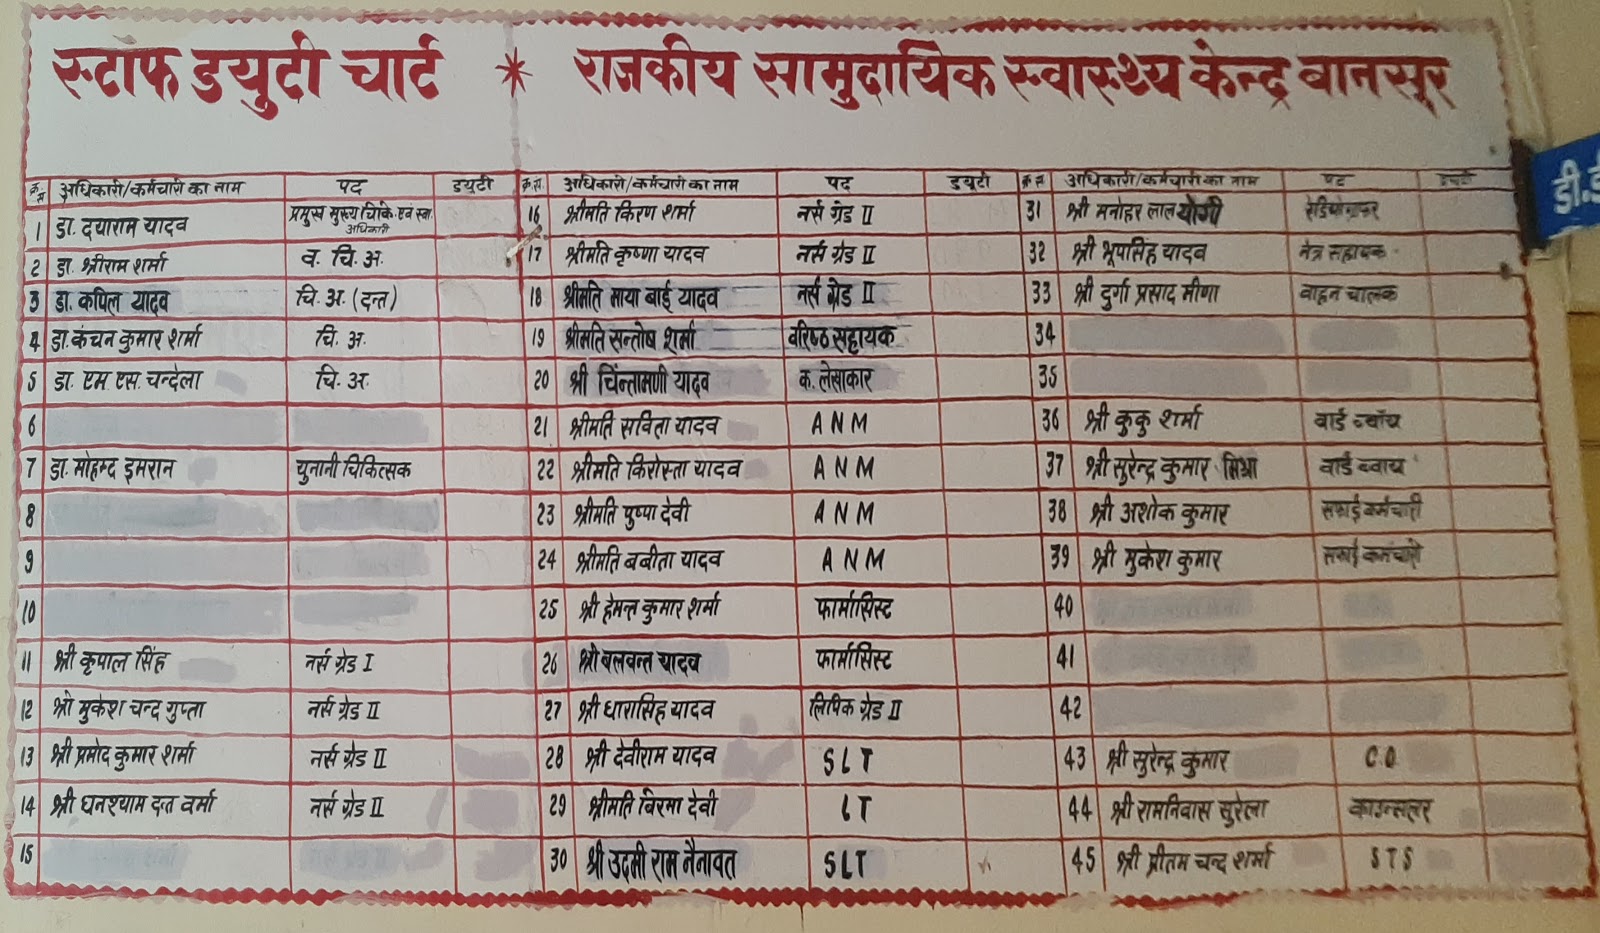 स्टाफ डयुटी चार्ट * राजकीय सामुदायिक स्वास्थ्य केन्द्र बानसूर
क्र.स. अधिकारी/कर्मचारी का नाम पद डयुटी
1 डा. दयाराम यादव प्रमुख मुख्य चिकि. एवं स्वा. अधिकारी
2 डा. श्रीराम शर्मा व. चि. अ.
3 डा. कपिल यादव चि. अ. (दन्त)
4 डा. कंचन कुमार शर्मा चि. अ.
5 डा. एम. एस. चन्देला चि. अ.
6
7 डा. मोहम्द इमरान युनानी चिकित्सक
8
9
10
11 श्री कृपाल सिंह नर्स ग्रेड I
12 श्री मुकेश चन्द गुप्ता नर्स ग्रेड II
13 श्री प्रमोद कुमार शर्मा नर्स ग्रेड II
14 श्री घनश्याम दत्त वर्मा नर्स ग्रेड II
15
क्र.स. अधिकारी/कर्मचारी का नाम पद डयुटी
16 श्रीमति किरण शर्मा नर्स ग्रेड II
17 श्रीमति कृष्णा यादव नर्स ग्रेड II
18 श्रीमति माया बाई यादव नर्स ग्रेड II
19 श्रीमति सन्तोष शर्मा वरिष्ठ सहायक
20 श्री चिंन्तामणी यादव क. लेखाकार
21 श्रीमति सविता यादव ANM
22 श्रीमति किरोस्ता यादव ANM
23 श्रीमति पुष्पा देवी ANM
24 श्रीमति बबीता यादव ANM
25 श्री हेमन्त कुमार शर्मा फार्मासिस्ट
26 श्री बलवन्त यादव फार्मासिस्ट
27 श्री धारासिंह यादव लिपिक ग्रेड II
28 श्री देवीराम यादव SLT
29 श्रीमति विरमा देवी LT
30 श्री उदमी राम नैनावत SLT
क्र स अधिकारी/कर्मचारी का नाम पद डयुटी
31 श्री मनोहर लाल योगी रेडियोग्राफर
32 श्री भूपसिंह यादव नेत्र सहायक
33 श्री दुर्गा प्रसाद मीणा वाहन चालक
34
35
36 श्री कुकु शर्मा वार्ड ब्वॉय
37 श्री सुरेन्द्र कुमार मिश्रा वार्ड ब्वाय
38 श्री अशोक कुमार सफाई कर्मचारी
39 श्री मुकेश कुमार सफाई कर्मचारी
40
41
42
43 श्री सुरेन्द्र कुमार C.O
44 श्री रामनिवास सुरेला काउन्सलर
45 श्री प्रीतम चन्द शर्मा STS
डी.डी